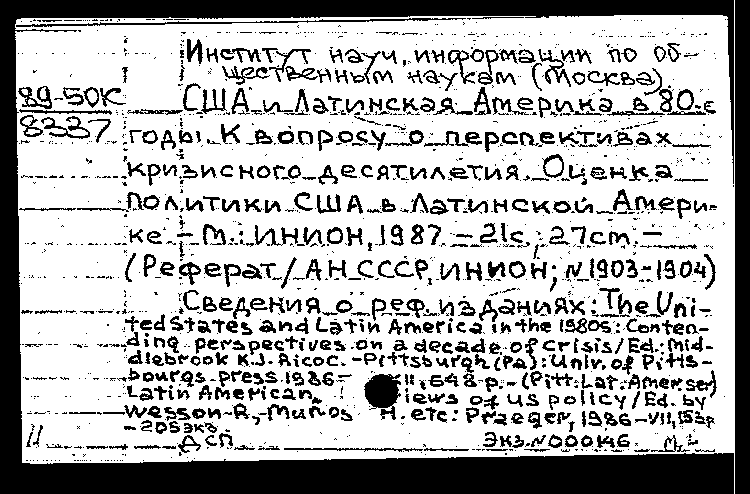 Институт науч. информации по об-
щественным наукам (Москва)
89-50К
США и Латинская Америка в 80-е
8337
годы. К вопросу о перспективах
кризисного десятилетия. Оценка
политики США в Латинской Амери-
ке.- М.: ИНИОН, 1987 - 21с.; 27cm. -
(Реферат/АН СССР, ИНИОН; N1903-1904)
Сведения о реф. изданиях: The Uni-
ted States and Latin America in the 1980s: Conten-
ding perspectives on a decade of crisis/Ed. Mid-
dlebrook K.J. Ricoc. - Pittsburgh (Pa): Univ. of Pitts-
bourgs press 1986- XII, 648 p. - (Pitt. Lat. Amer. ser)
Latin American views of US policy/Ed. by
Wesson R., Muños H. etc: Praeger, 1986 - VII, 153p
- 205экз.
ДСП Экз. N000146.